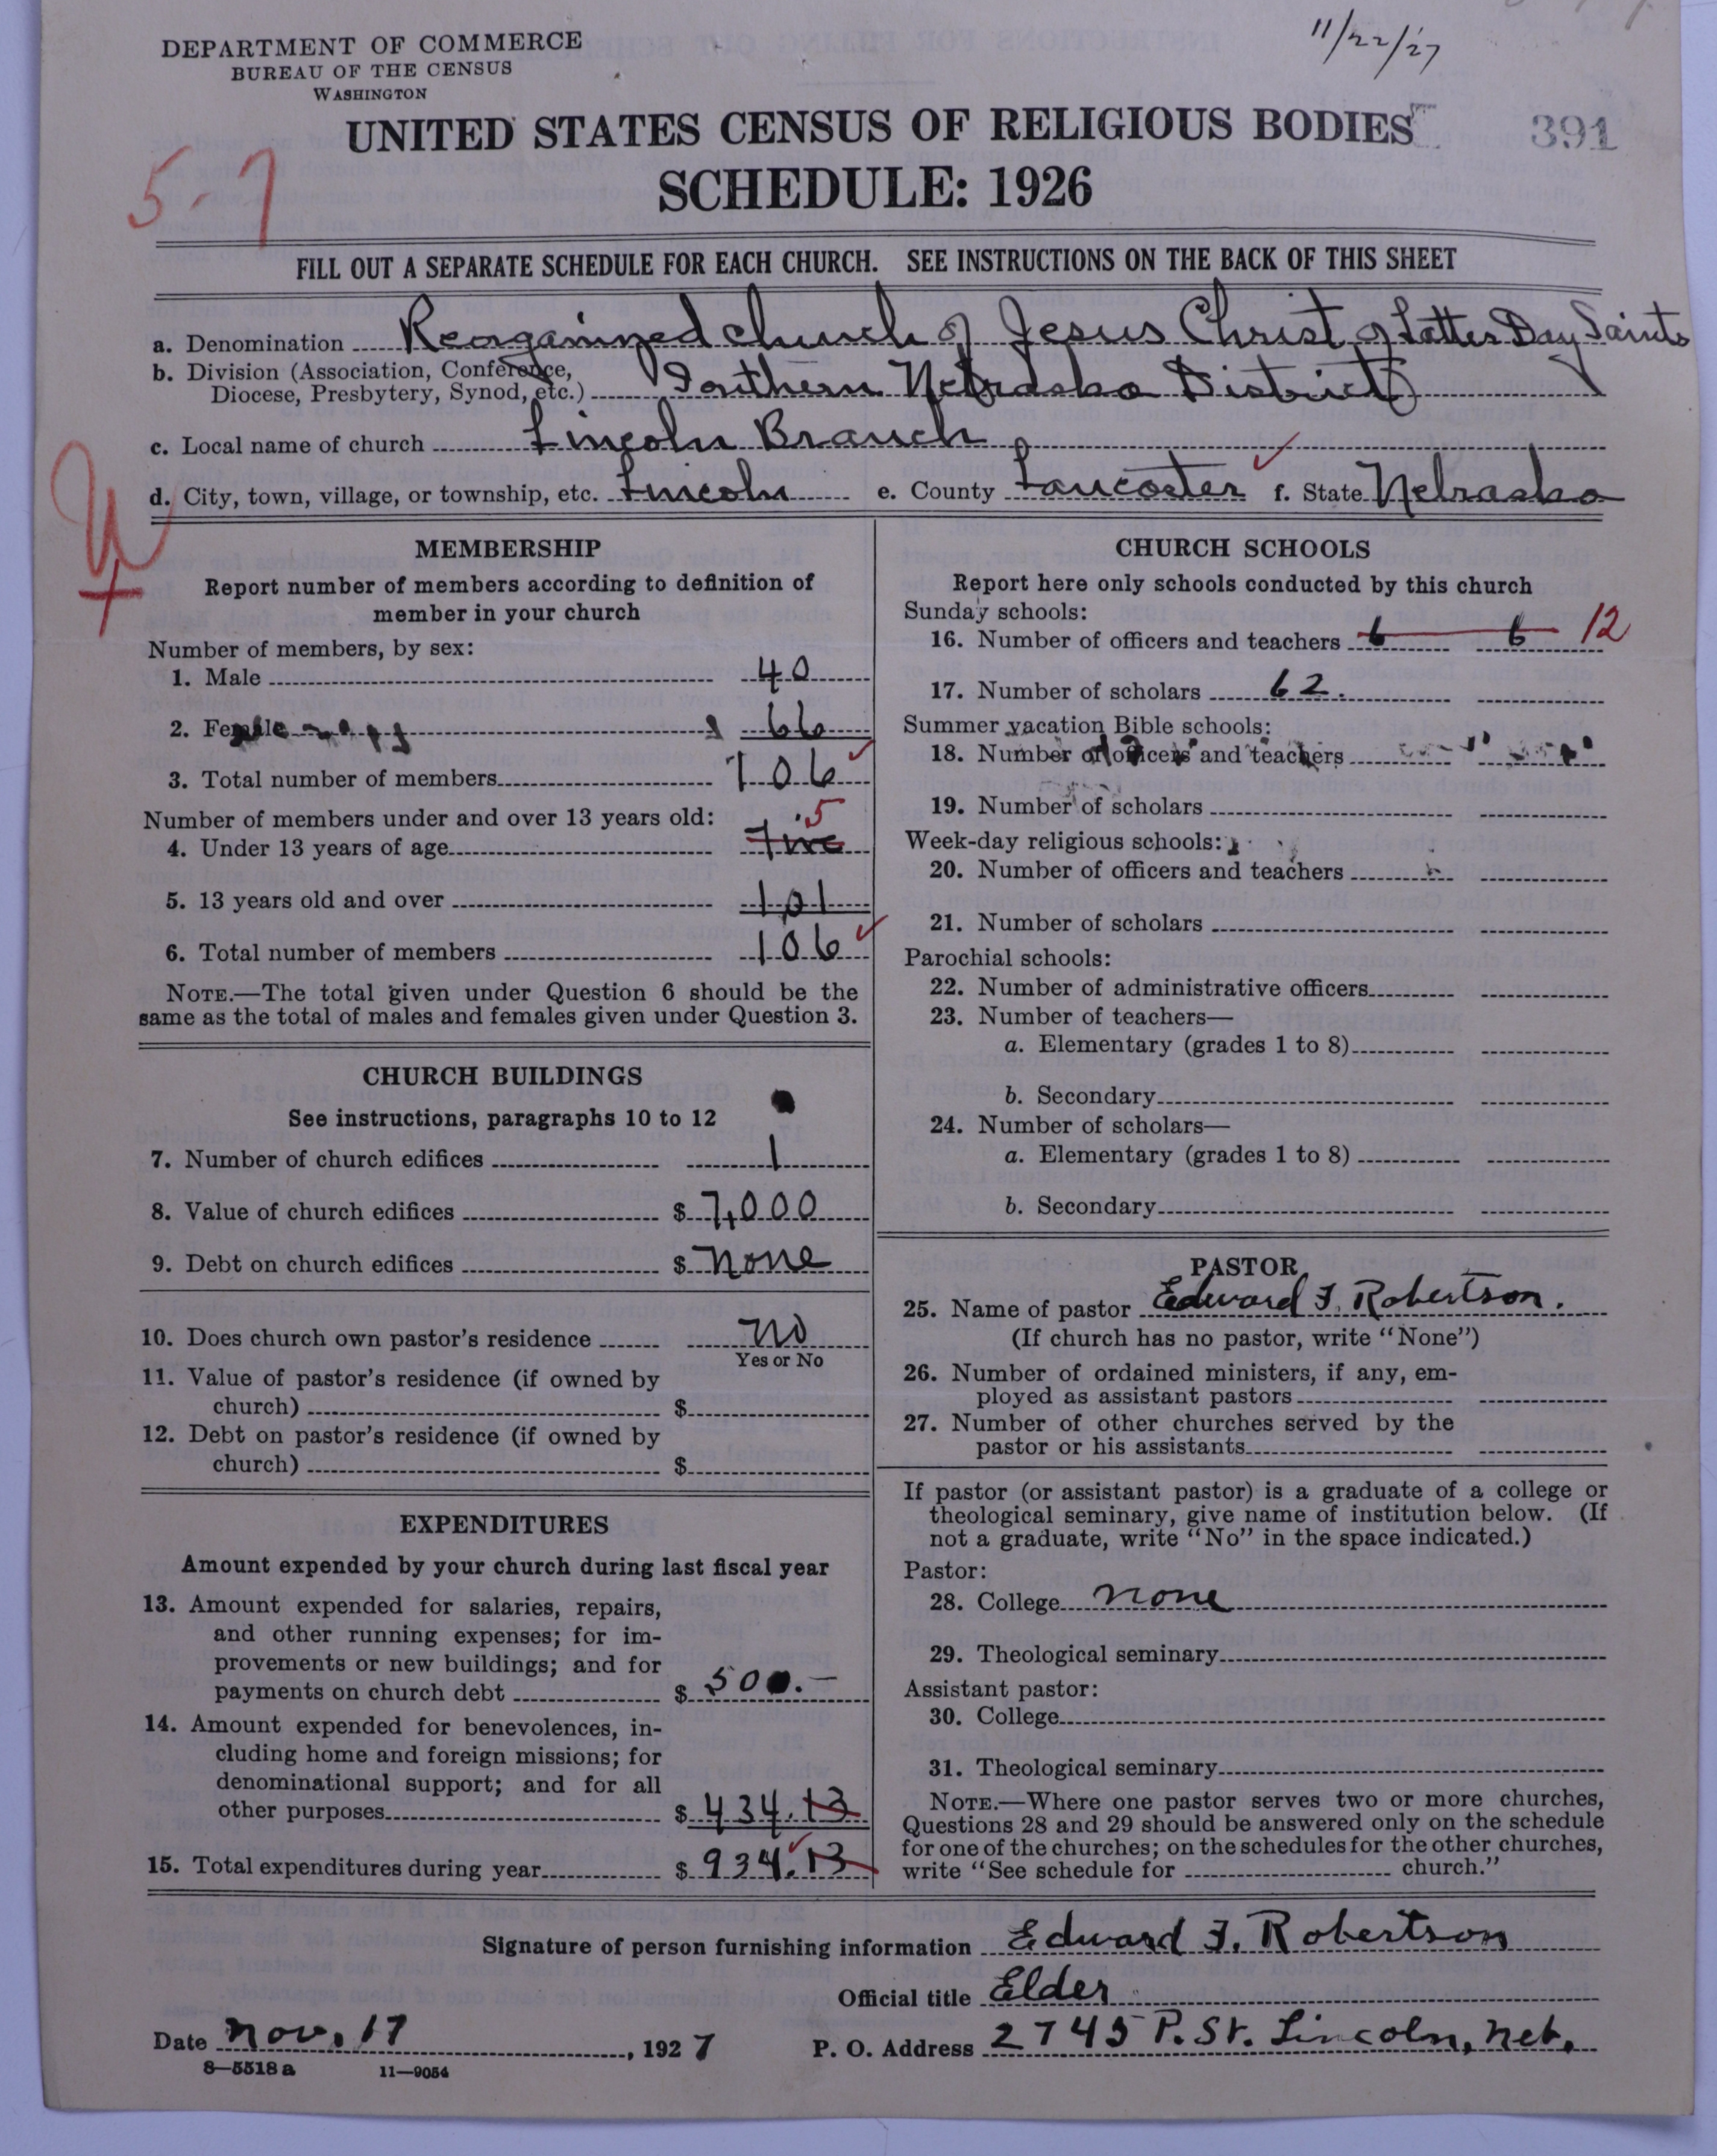 11/22/27
DEPARTMENT OF COMMERCE
BUREAU OF THE CENSUS
WASHINGTON
UNITED STATES CENSUS OF RELIGIOUS BODIES
391
SCHEDULE: 1926
5-7
FILL OUT A SEPARATE SCHEDULE FOR EACH CHURCH. SEE INSTRUCTIONS ON THE BACK OF THIS SHEET
a. Denomination Reorganized church of Jesus Christ of Latter Day Saints
b. Division (Association, Conference,
Diocese, Presbytery, Synod, etc.) Southern Nebraska District
c. Local name of church Lincoln Branch
d. City, town, village, or township, etc. Lincoln e. County Lancaster f. State Nebraska
MEMBERSHIP
Report number of members according to definition of
member in your church
Number of members, by sex:
1. Male 40
2. Female 66
3. Total number of members 106
Number of members under and over 13 years old:
4. Under 13 years of age five 5
5. 13 years old and over 101
6. Total number of members 106
NOTE.—The total given under Question 6 should be the
same as the total of males and females given under Question 3.
CHURCH BUILDINGS
See instructions, paragraphs 10 to 12
7. Number of church edifices 1
8. Value of church edifices $ 7,000
9. Debt on church edifices $ none
10. Does church own pastor's residence no
Yes or No
11. Value of pastor's residence (if owned by
church) $
12. Debt on pastor's residence (if owned by
church) $
EXPENDITURES
Amount expended by your church during last fiscal year
13. Amount expended for salaries, repairs,
and other running expenses; for im-
provements or new buildings; and for
payments on church debt $ 500.—
14. Amount expended for benevolences, in-
cluding home and foreign missions; for
denominational support; and for all
other purposes $ 434.13
15. Total expenditures during year $ 934.13
CHURCH SCHOOLS
Report here only schools conducted by this church
Sunday schools:
16. Number of officers and teachers 6 6 12
17. Number of scholars 62.
Summer vacation Bible schools:
18. Number of officers and teachers
19. Number of scholars
Week-day religious schools:
20. Number of officers and teachers
21. Number of scholars
Parochial schools:
22. Number of administrative officers
23. Number of teachers—
a. Elementary (grades 1 to 8)
b. Secondary
24. Number of scholars—
a. Elementary (grades 1 to 8)
b. Secondary
PASTOR
25. Name of pastor Edward F. Robertson.
(If church has no pastor, write "None")
26. Number of ordained ministers, if any, em-
ployed as assistant pastors
27. Number of other churches served by the
pastor or his assistants
If pastor (or assistant pastor) is a graduate of a college or
theological seminary, give name of institution below. (If
not a graduate, write "No" in the space indicated.)
Pastor:
28. College none
29. Theological seminary
Assistant pastor:
30. College
31. Theological seminary
NOTE.—Where one pastor serves two or more churches,
Questions 28 and 29 should be answered only on the schedule
for one of the churches; on the schedules for the other churches,
write "See schedule for church."
Signature of person furnishing information Edward F. Robertson
Official title Elder
Date Nov. 17, 1927 P. O. Address 2745 P. St. Lincoln, Neb.
8—5518 a 11—9054